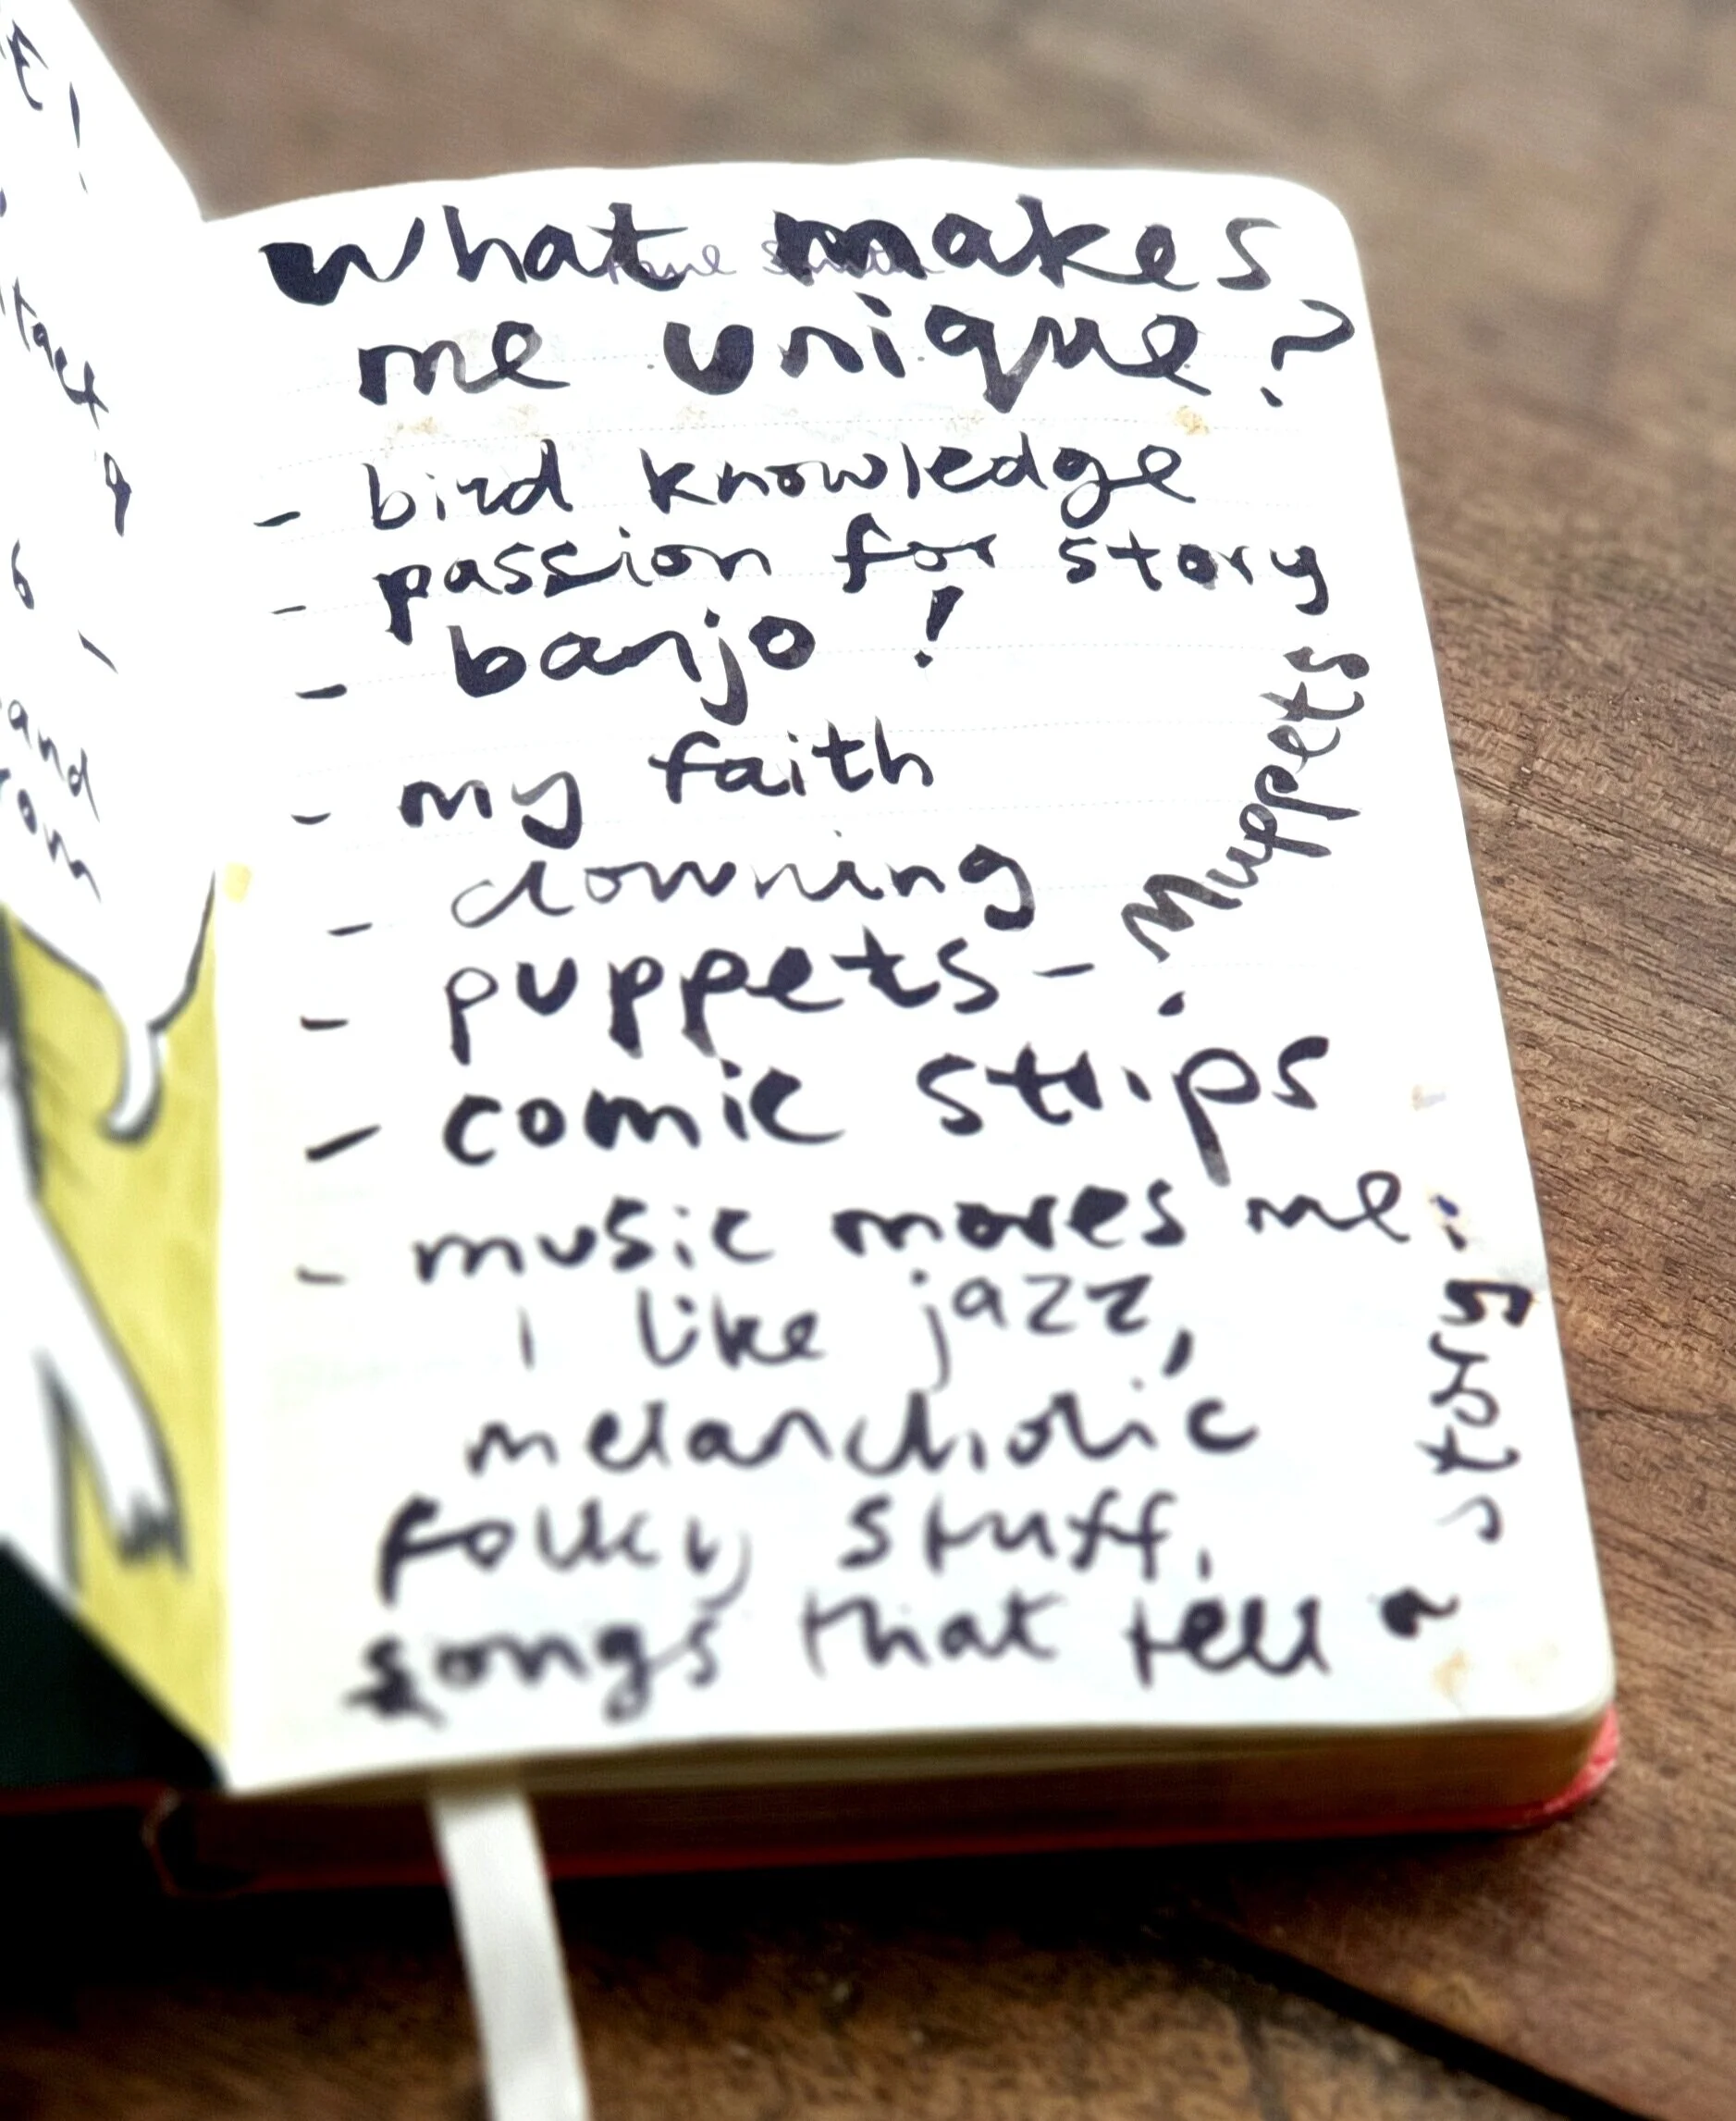 what makes
me unique?
- bird knowledge
- passion for story
- banjo!
- my faith
- clowning
- puppets - Muppets!
- comic strips
- music moves me.
i like jazz,
melancholic
folky stuff,
songs that tell a
story
and